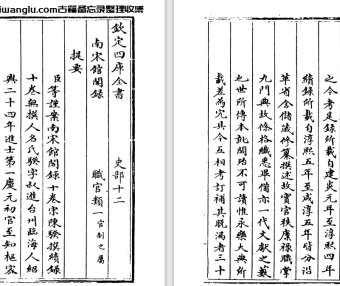 iwanglu.com古籍备忘录整理收集
欽定四庫全書 史部十二
南宋館閣錄 職官類一官制之屬
提要
臣等謹案南宋館閣錄十卷宋陳騤撰續錄
十卷無撰人名氏騤字叔進台州臨海人紹
興二十四年進士第一慶元初官至知樞密
之今考是錄所載自建炎元年至淳熙四年
續錄所載自淳熙五年至咸淳五年皆分沿
革省舍儲藏修纂撰述故實官聯廩祿職掌
九門典故條格纖悉畢備亦一代文獻之藪
也世所傳本訛闕殆不可讀惟永樂大典所
載差為完具今互相考訂補其脱漏者三十